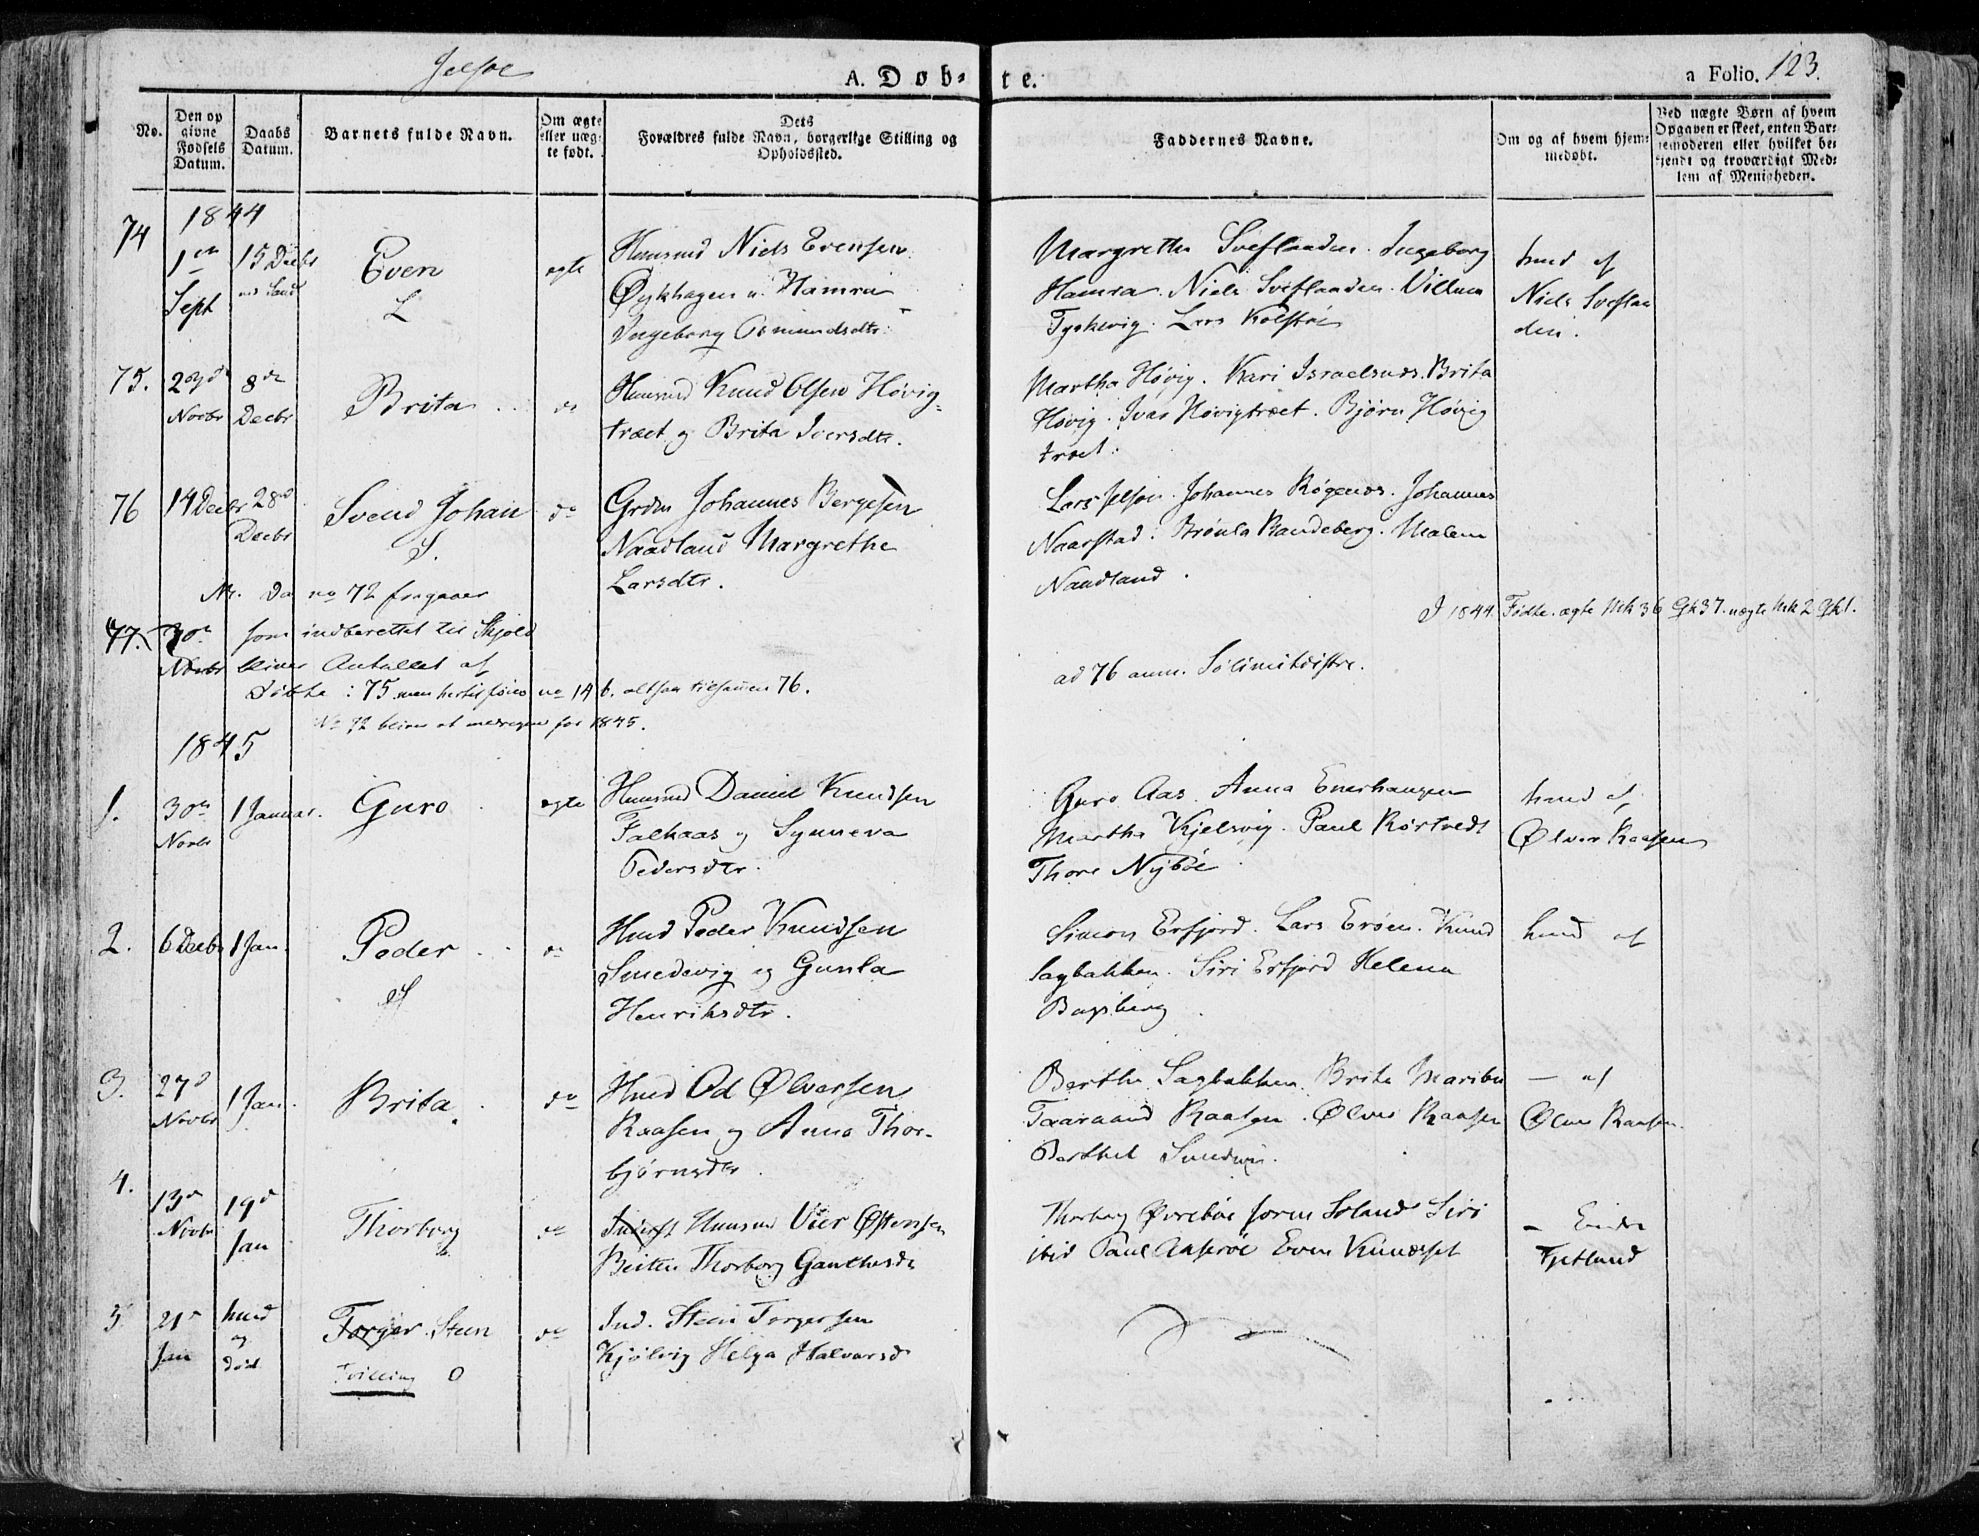 Jelsøe
A. Døb-
te.
a Folio. 123.
No.
Den op
givne
Fødsels
Datum.
Daabs
Datum.
Barnets fulde Navn.
Om ægte
eller uæg-
te født.
Dets
Forældres fulde Navn, borgerlige Stilling og
Opholdssted.
Faddernes Navne.
Om og af hvem hjem-
medøbt.
Ved uægte Børn af hvem
Opgaven er skeet, enten Bar-
nemoderen eller hvilket be-
kjendt og troværdigt Med-
lem af Menigheden.
1844
74
1
Sept
15 Decbr
Even
ægte
Huusmd Niels Evensen
Øykhagen u. Hamra
Ingeborg Osmundsdtr.
Margrethe Sveflanden. Ingeborg
Hamra. Niels Sveflanden. Villum
Tyskevig. Lars Kolstøe
hmd af
Niels Sveflan
den.
75.
Novbr
8de
Decbr
Brita
do
Huusmd Knud Olsen Høvig-
træet og Brita Iversdtr.
Martha Høvig. Kari Israelsnes. Brita
Høvig. Ivar Høvigtræet. Bjørn Høvig
træet.
76
14 Decbr
28d
Decbr
Svend Johan
do
Grdm Johannes Bergesen
Naadland Margrethe
Larsdtr.
Lars Jelsøe. Johannes Røgenes. Johannes
Naarstad. Brønla Bandeberg. Malene
Naadland.
No. Da no 72 fragaaer
77.
30
Novbr
som indberettet til Skjold
bliver Antallet af
Døbte: 75 men hertil føies no 14 b. altsaa tilsammen 76.
No 72 bliver at medregne for 1845.
I 1844 Fødte. ægte Mk 36 Qk 37. uægte Mk 2 Qk 1.
ad 76 anm.
1845
1.
30
Novbr
1 Januar.
Guro
ægte
Huusmd Daniel Knudsen
Falkaas og Synneva
Pedersdtr.
Guro Aas. Anna Enerhaugen
Martha Kjelsvig. Paul Rørtvedt
Thore Nybøe
hmd af
Ølver Raasen
2.
6 Decbr
1 Jan.
Peder
do
Hmd Peder Knudsen
Smedevig og Gunla
Henriksdtr.
Simon Erfjord. Lars Erøen. Knud
Sagbakken. Siri Erfjord Helena
Bogsberg
hmd af
3.
27d
Novbr
1 Jan.
Brita
do
Hmd Od Ølversen
Raasen og Anna Thor-
bjørnsdtr.
Berthe Sagbakken. Brita Maribu
Taaraand Raasen. Ølver Raasen
Berthel Smedvig.
— af
Ølver Raasen.
4.
13d
Novbr
19d
Jan
Thorborg
do
Inderst Huusmd Vier Østensen
Beiten Thorborg Gauthesd
Thorborg Øvrebøe Søren Soland Siri
ibid Paul Aaserøe Even Knudset
— Endre
Tjetland
5
21d
Jan
hmd
og
død
Torger Steen
Tvilling O
do
Ind. Steen Torgersen
Kjølvig Helga Halvorsd